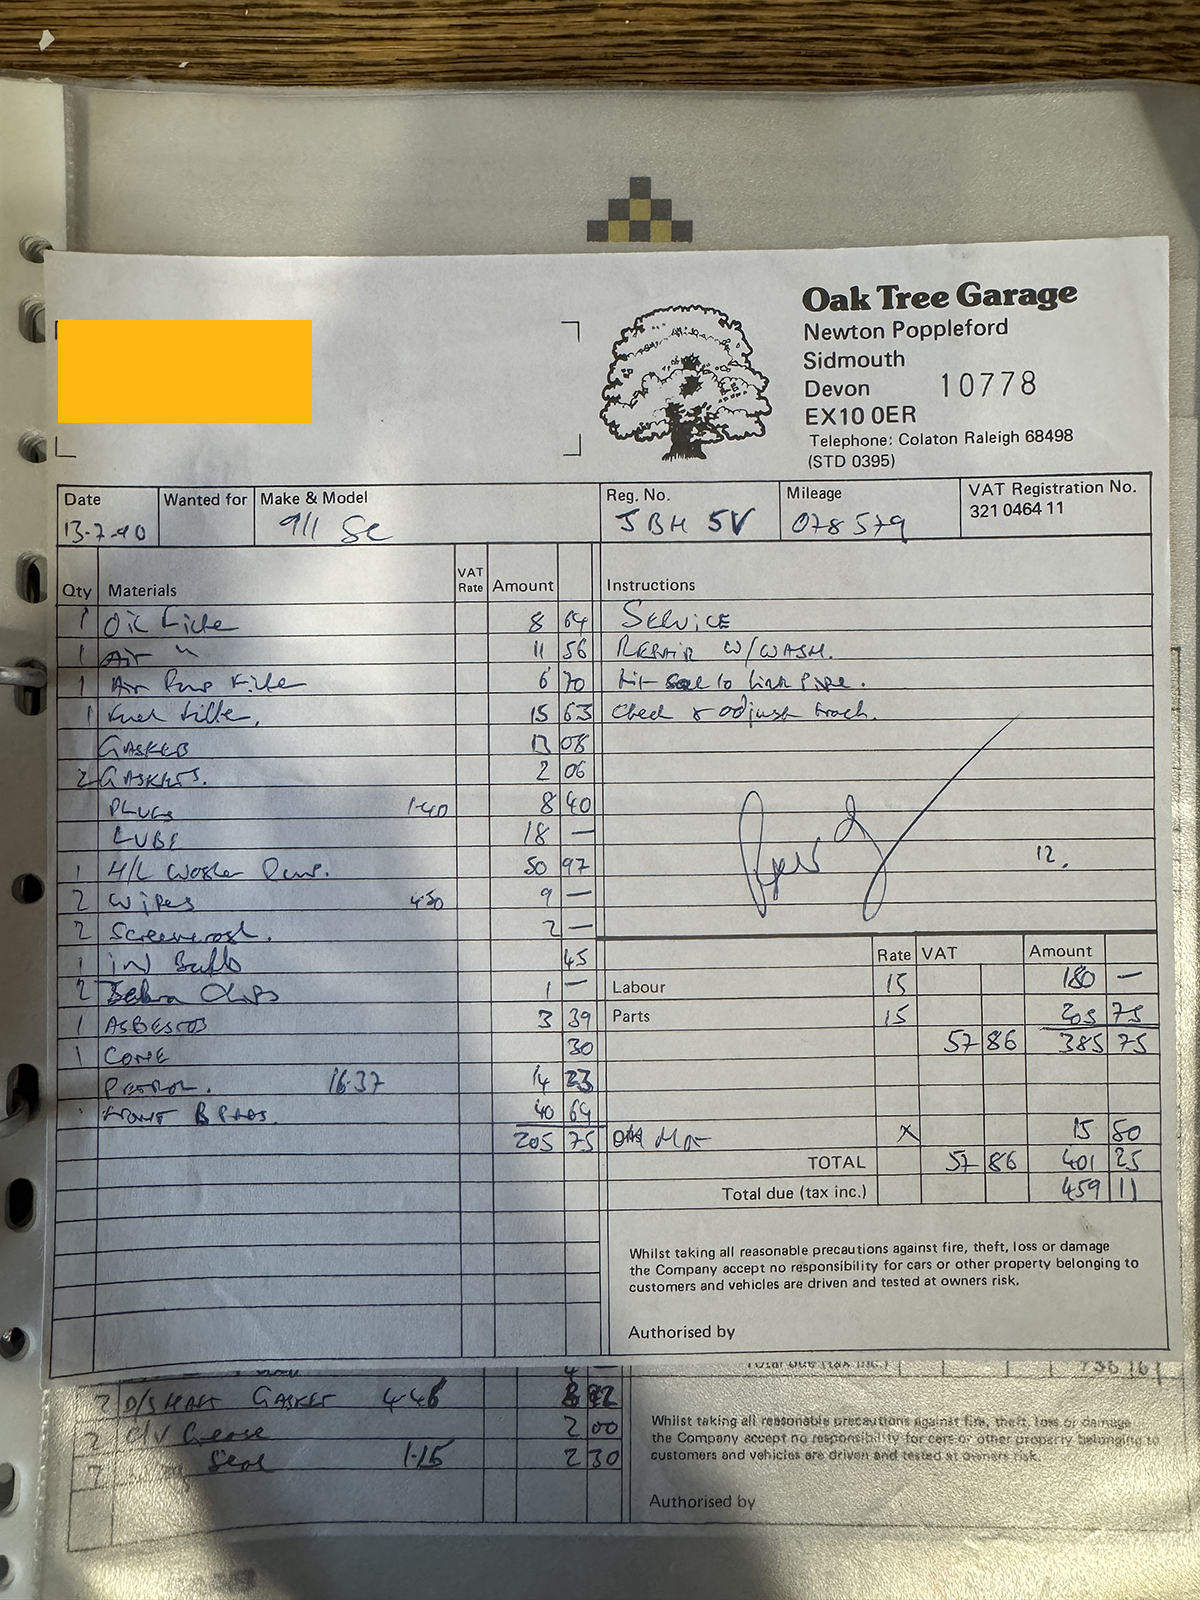 Oak Tree Garage
Newton Poppleford
Sidmouth
Devon 10778
EX10 0ER
Telephone: Colaton Raleigh 68498
(STD 0395)
Date Wanted for Make & Model Reg. No. Mileage VAT Registration No.
13-7-90 911 SC JBH 5V 078579 321 0464 11
Qty Materials VAT Rate Amount Instructions
1 Oil Filte 8 64 SERVICE
1 Air " 11 56 REPAIR W/WASH.
1 Air Pump Filte 6 70 Fit to link pipe.
1 Fuel Filte, 15 63 Check & adjust track.
GASKED 13 08
2 GASKETS. 2 06
PLUGS 1-40 8 40
LUBE 18 —
1 H/L Washer Pump. 50 97 12.
2 Wipes 4-50 9 —
2 Screenwash. 2 —
1 Bulb 45
2 Clips 1 —
1 ASBESTOS 3 39
1 CONE 30
PETROL. 16.37 14 23
FRONT B PADS. 40 64
205 75
Rate VAT Amount
Labour 15 180 —
Parts 15 205 75
57 86 385 75
MOT X 15 50
TOTAL 57 86 401 25
Total due (tax inc.) 459 11
Whilst taking all reasonable precautions against fire, theft, loss or damage
the Company accept no responsibility for cars or other property belonging to
customers and vehicles are driven and tested at owners risk.
Authorised by
Total due (tax inc.)
2 D/SHAFT GASKET 4-46
2 C/V Grease 2 00
2 Seal 1-15 2 30
Whilst taking all reasonable precautions against fire, theft, loss or damage
the Company accept no responsibility for cars or other property belonging to
customers and vehicles are driven and tested at owners risk.
Authorised by